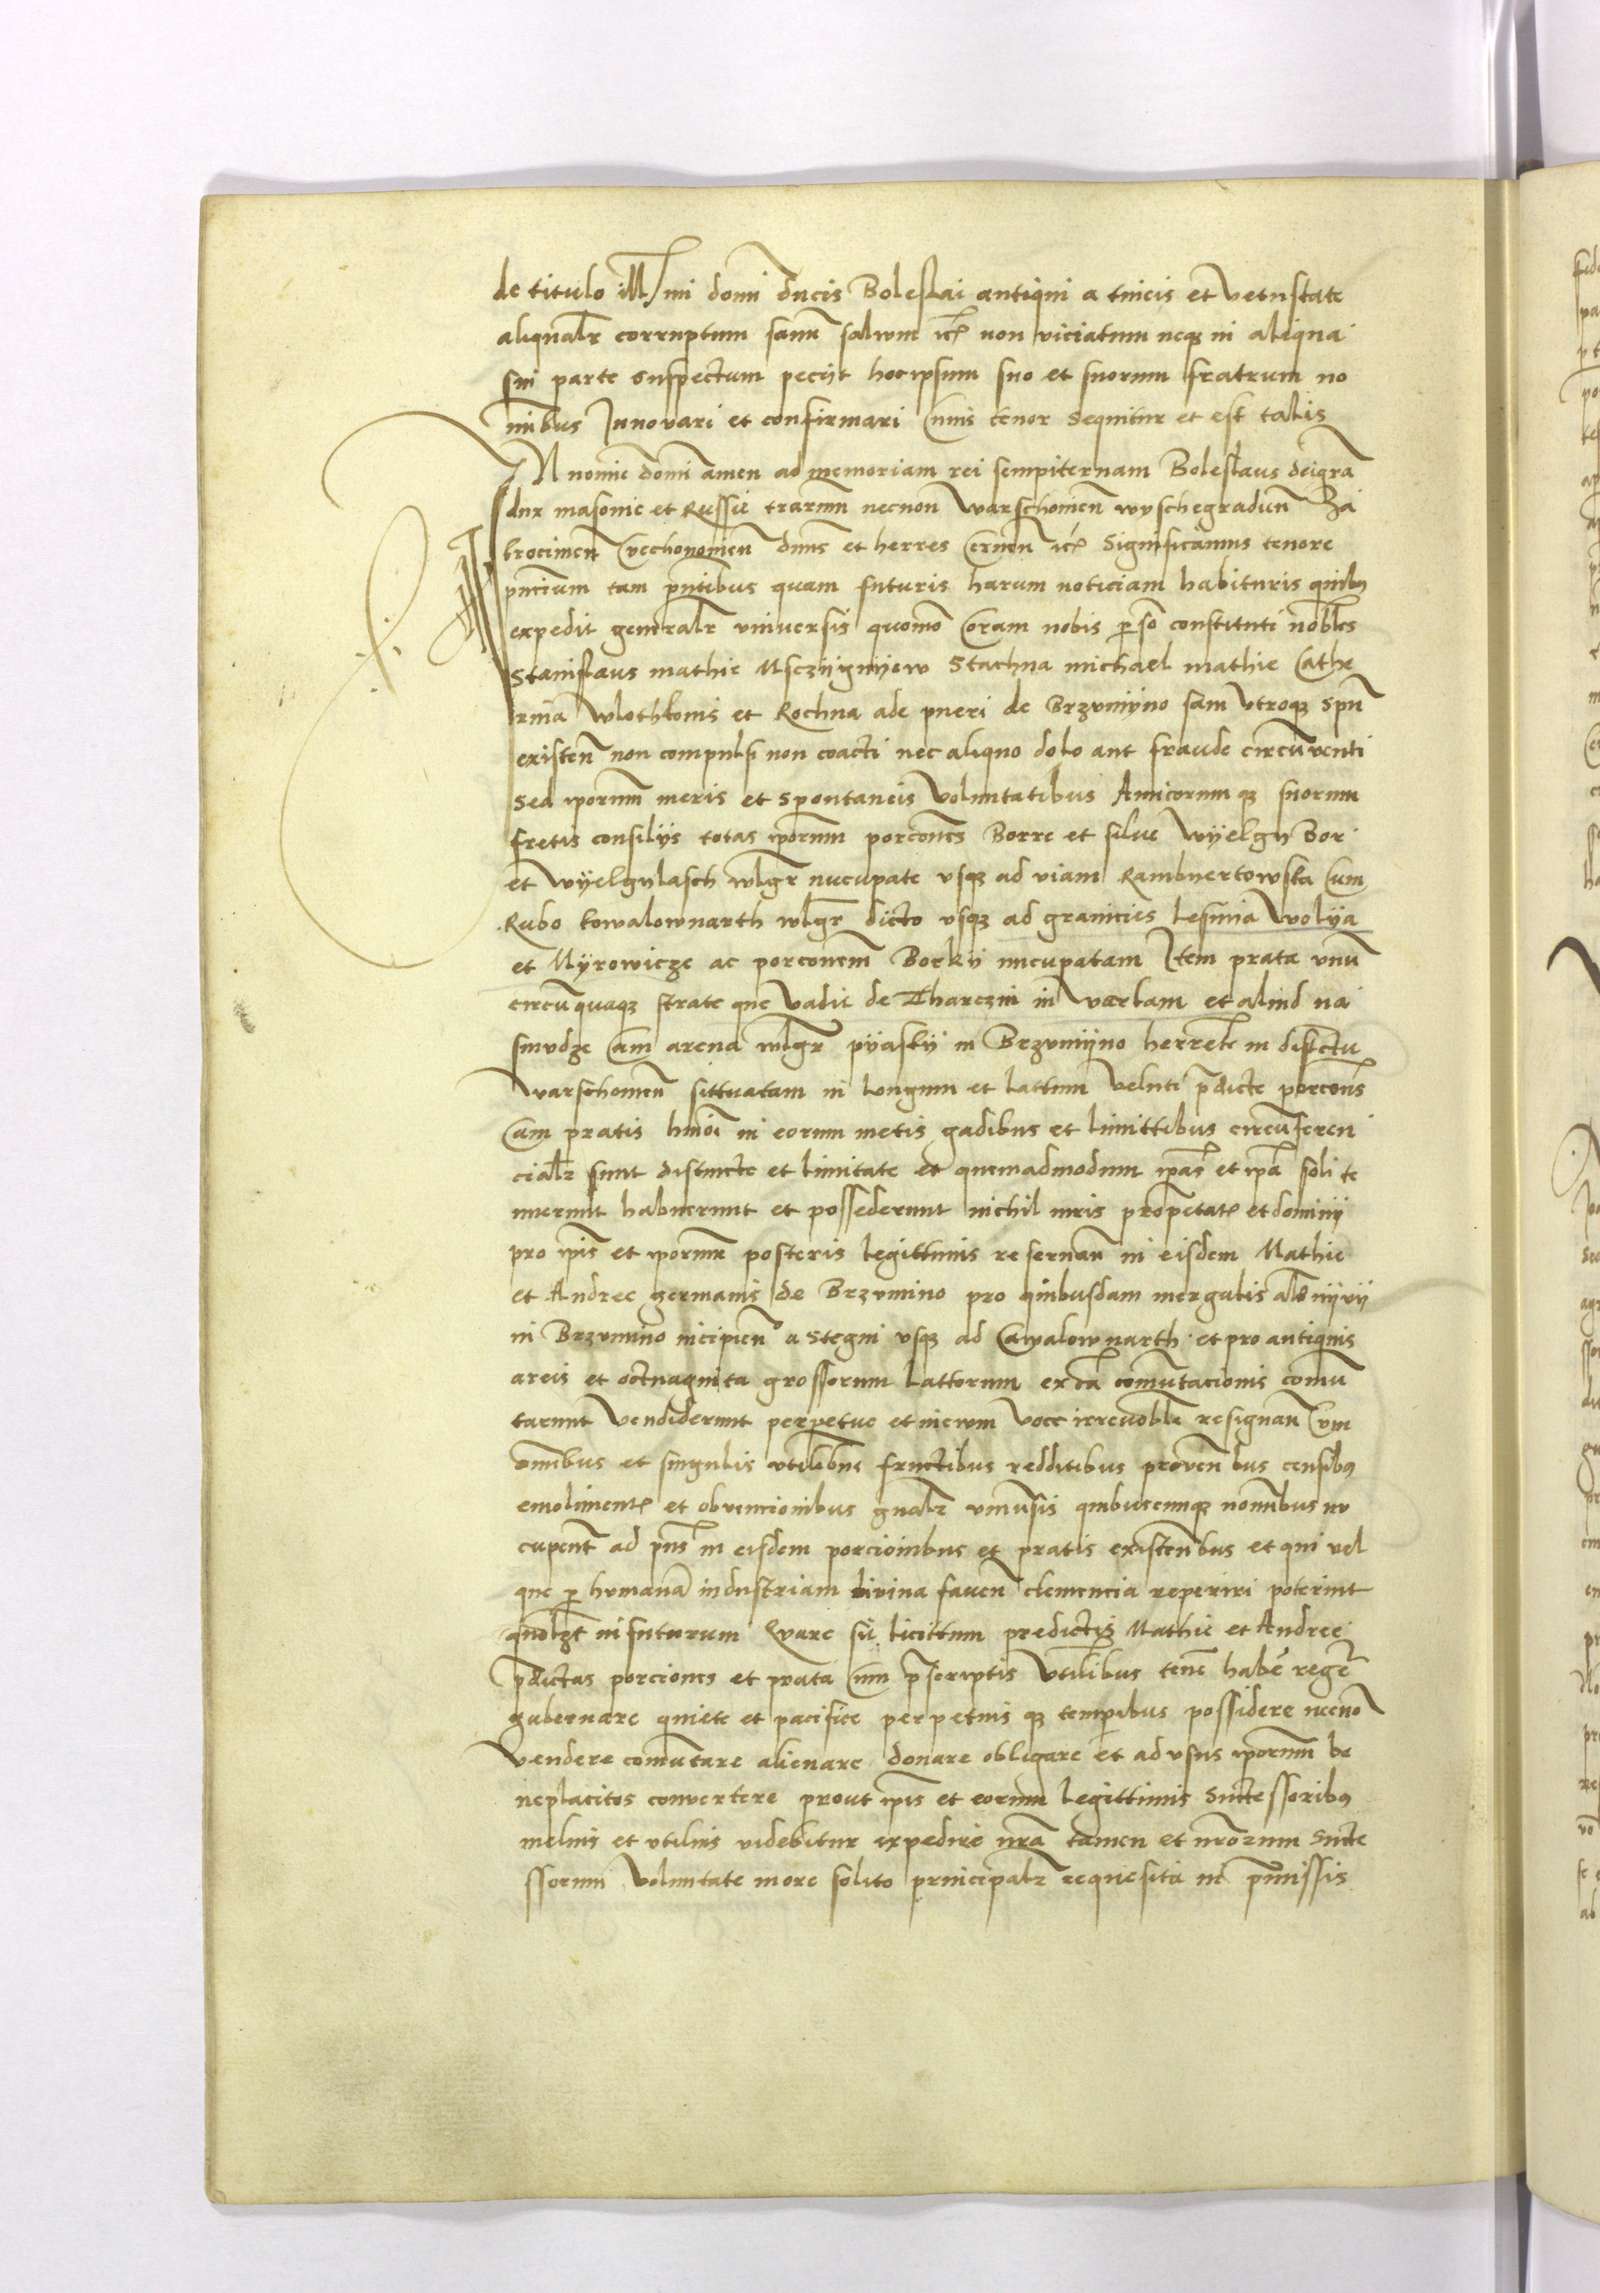 de titulo Ill<sup>mi</sup> domi ducis Boleslai antiqui a tineis et vetustate
aliqualr corruptum sanu salwm etc non viciatum neq in aliqua
sui parte suspectum peciit hocipsum suo et suorum fratrum no
ibus Innovari et confirmari Cuius tenor sequitur et est talis
IN nomie domi amen ad memoriam rei sempiternam Boleslaus dei gra
dux masonie et Russie trarum necnon warschonien wyschegradien Za
krocimen Czechonomien dnus et herres Czernen etc Significamus tenore
pncium tam pntibus quam futuris harum noticiam habituris quibus
expedit generalr vniuersis quomo Coram nobis pso constituti nobles
Stanislaus mathie Msczngnijew Stachna michael mathie Cathe
rina Wlothkonis et Rochna ade pueri de Brzvmijno sani vtroq spu
existen non compulsi non coacti nec aliquo dolo aut fraude circuventi
Sed iporum meris et spontaneis voluntatibus Amicorum q suorum
fretis consilijs totas iporum porcones Borre et silve Wijelgij Bor
et Wijelgnlasch wlgr nucupate vsq ad viam Rambuertowska Cum
Rubo kowalownarth wlgr dicto vsq ad granicies lesnia Wolija
et Mijrowicze ac porconem Borkij nucupatam Item prata vnu
circuquaq strate que vadit de Tharczin in Varkam et aliud na
smvdze Cum arena wlgr pijaskij in Brzvmijno herreli in districtu
warschonien sittuatam in longum et lattum veluti pdicte porcones
Cum pratis hmoi in eorum metis gadibus et limittibus circuferen
cialr sunt distincte et limitate et quemadmodum ipas et ipa soli te
nuerunt habuerunt et possederunt nichil iuris propetate et dominij
pro ipis et iporum posteris legittimis reseruan in eisdem Mathie
et Andree germanis de Brzvmino pro quibusdam mergulis als nijvij
in Brzvmino incipien a stegni vsq ad Cawalownarth et pro antiquis
areis et octuaginta grossorum lattorum ex ca comutacionis comu
tarunt vendiderunt perpetue et inewm voce irreuoble resignan Cum
omibus et singulis vtilibus fructibus redditibus provenbus censibus
emolimente et obvencionibus gnalr vniusis quibuscunq nominbus nu
cupent ad pns in eisdem porcionibus et pratis existenbus et qui vel
que p humana industriam divina faven clemencia reperiri poterint
quolzt in futurum Quare sit licittum predictis Mathie et Andree
pdictas porciones et prata Cum pscriptis vtilibus tene habe rege
gubernare quiete et pacifice perpetuis q tempibus possidere necno
vendere comutare alienare donare obligare et ad vsus iporum be
neplacitos convertere prout ipis et eorum legittimis Successoribus
melius et vtilius videbitur expedire nra tamen et nrorum Succe
ssorum voluntate more solito principalr requesita in pmissis